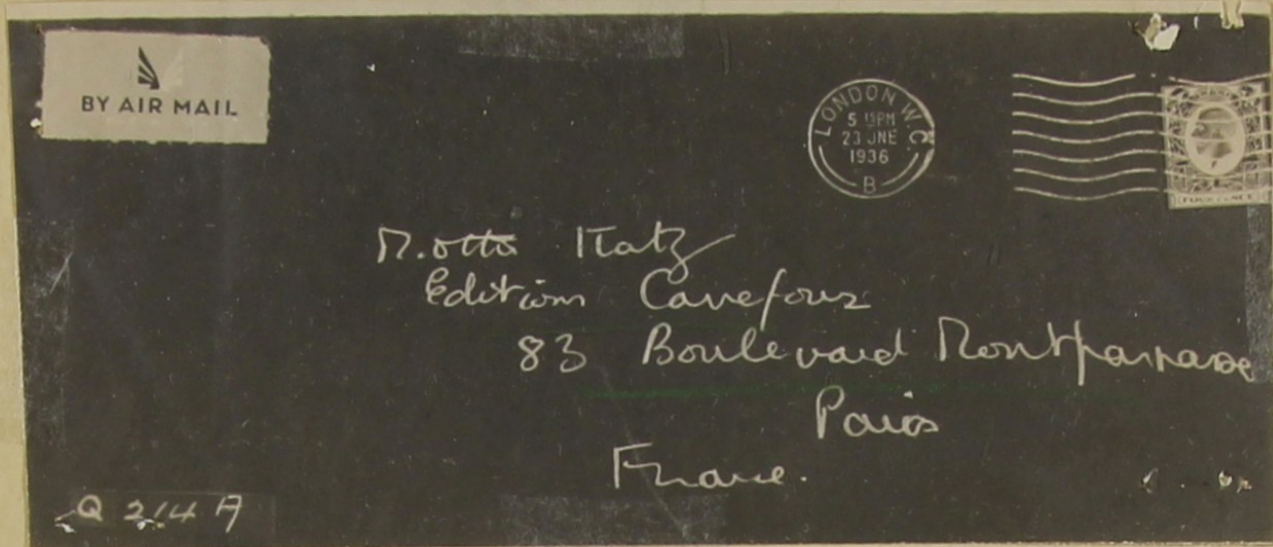 BY AIR MAIL
LONDON W.C.
5 15PM
23 JNE
1936
B
FOUR PENCE
M. Otto Katz
Editions Carrefour
83 Boulevard Montparnasse
Paris
France.
Q 214 A